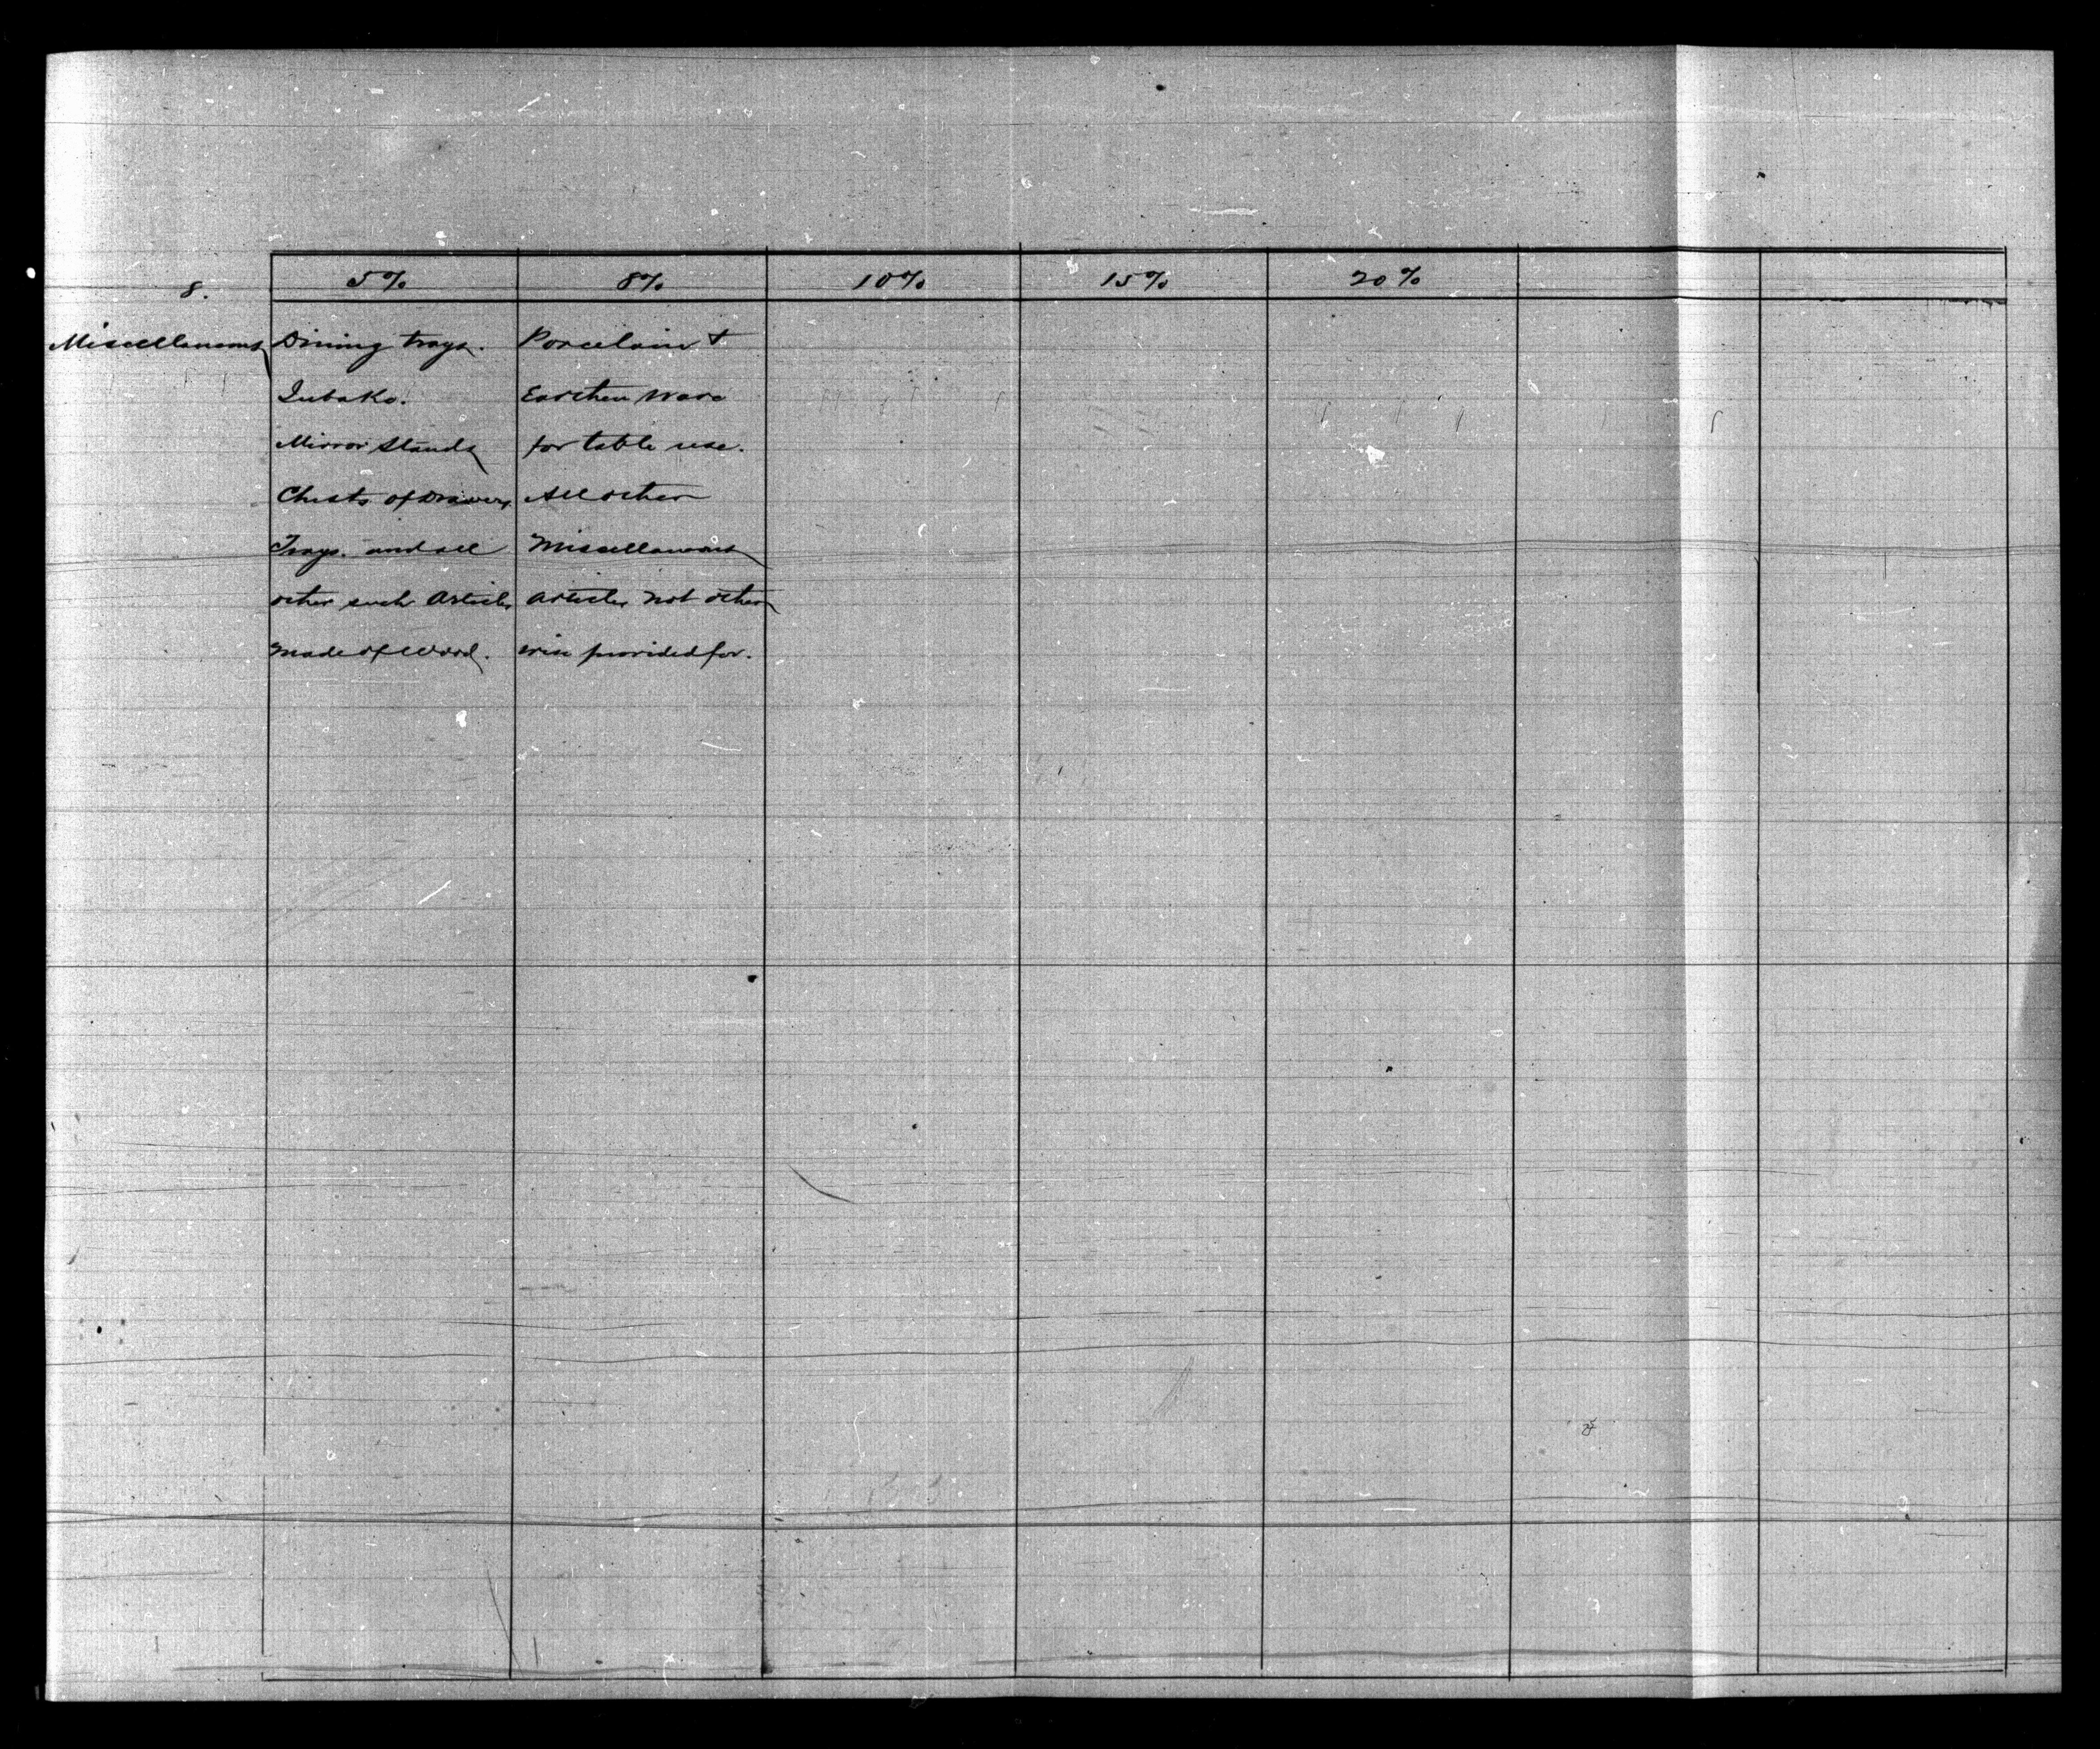 8. 5% 8% 10% 15% 20%
Miscellaneous Dining trays. Porcelain &
Jubako. Earthen ware
Mirror Stands for table use.
Chests of Drawers All other
Trays. and all Miscellaneous
other such Articles articles not other
made of wood. wise provided for.